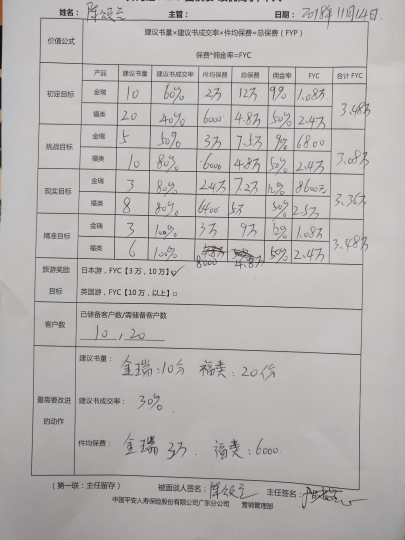 姓名： 主管： 日期： 2018年11月14日
价值公式 建议书量×建议书成交率×件均保费=总保费（FYP）
保费*佣金率=FYC
产品 建议书量 建议书成交率 件均保费 总保费 佣金率 FYC 合计 FYC
初定目标 金瑞 10 60% 2万 12万 9% 1.08万 3.48万
福类 20 40% 6000 4.8万 50% 2.4万
挑战目标 金瑞 5 50% 3万 7.5万 9% 6800 3.08万
福类 10 80% 6000 4.8万 50% 2.4万
现实目标 金瑞 3 80% 2.4万 7.2万 12% 8600元 3.36万
福类 8 80% 6400 5万 50% 2.5万
精准目标 金瑞 3 100% 3万 9万 12% 1.08万 3.48万
福类 6 100% 8000 4.8万 50% 2.4万
旅游奖励 日本游，FYC【3 万，10 万】√
目标 英国游，FYC【10 万，以上】□
客户数 已储备客户数/需储备客户数
10 , 20
最需要改进的动作 建议书量：
金瑞：10份 福类：20份
建议书成交率：30%
件均保费：
金瑞 3万 福类：6000
（第一联：主任留存） 被面谈人签名： 主任签名：
中国平安人寿保险股份有限公司广东分公司 营销管理部